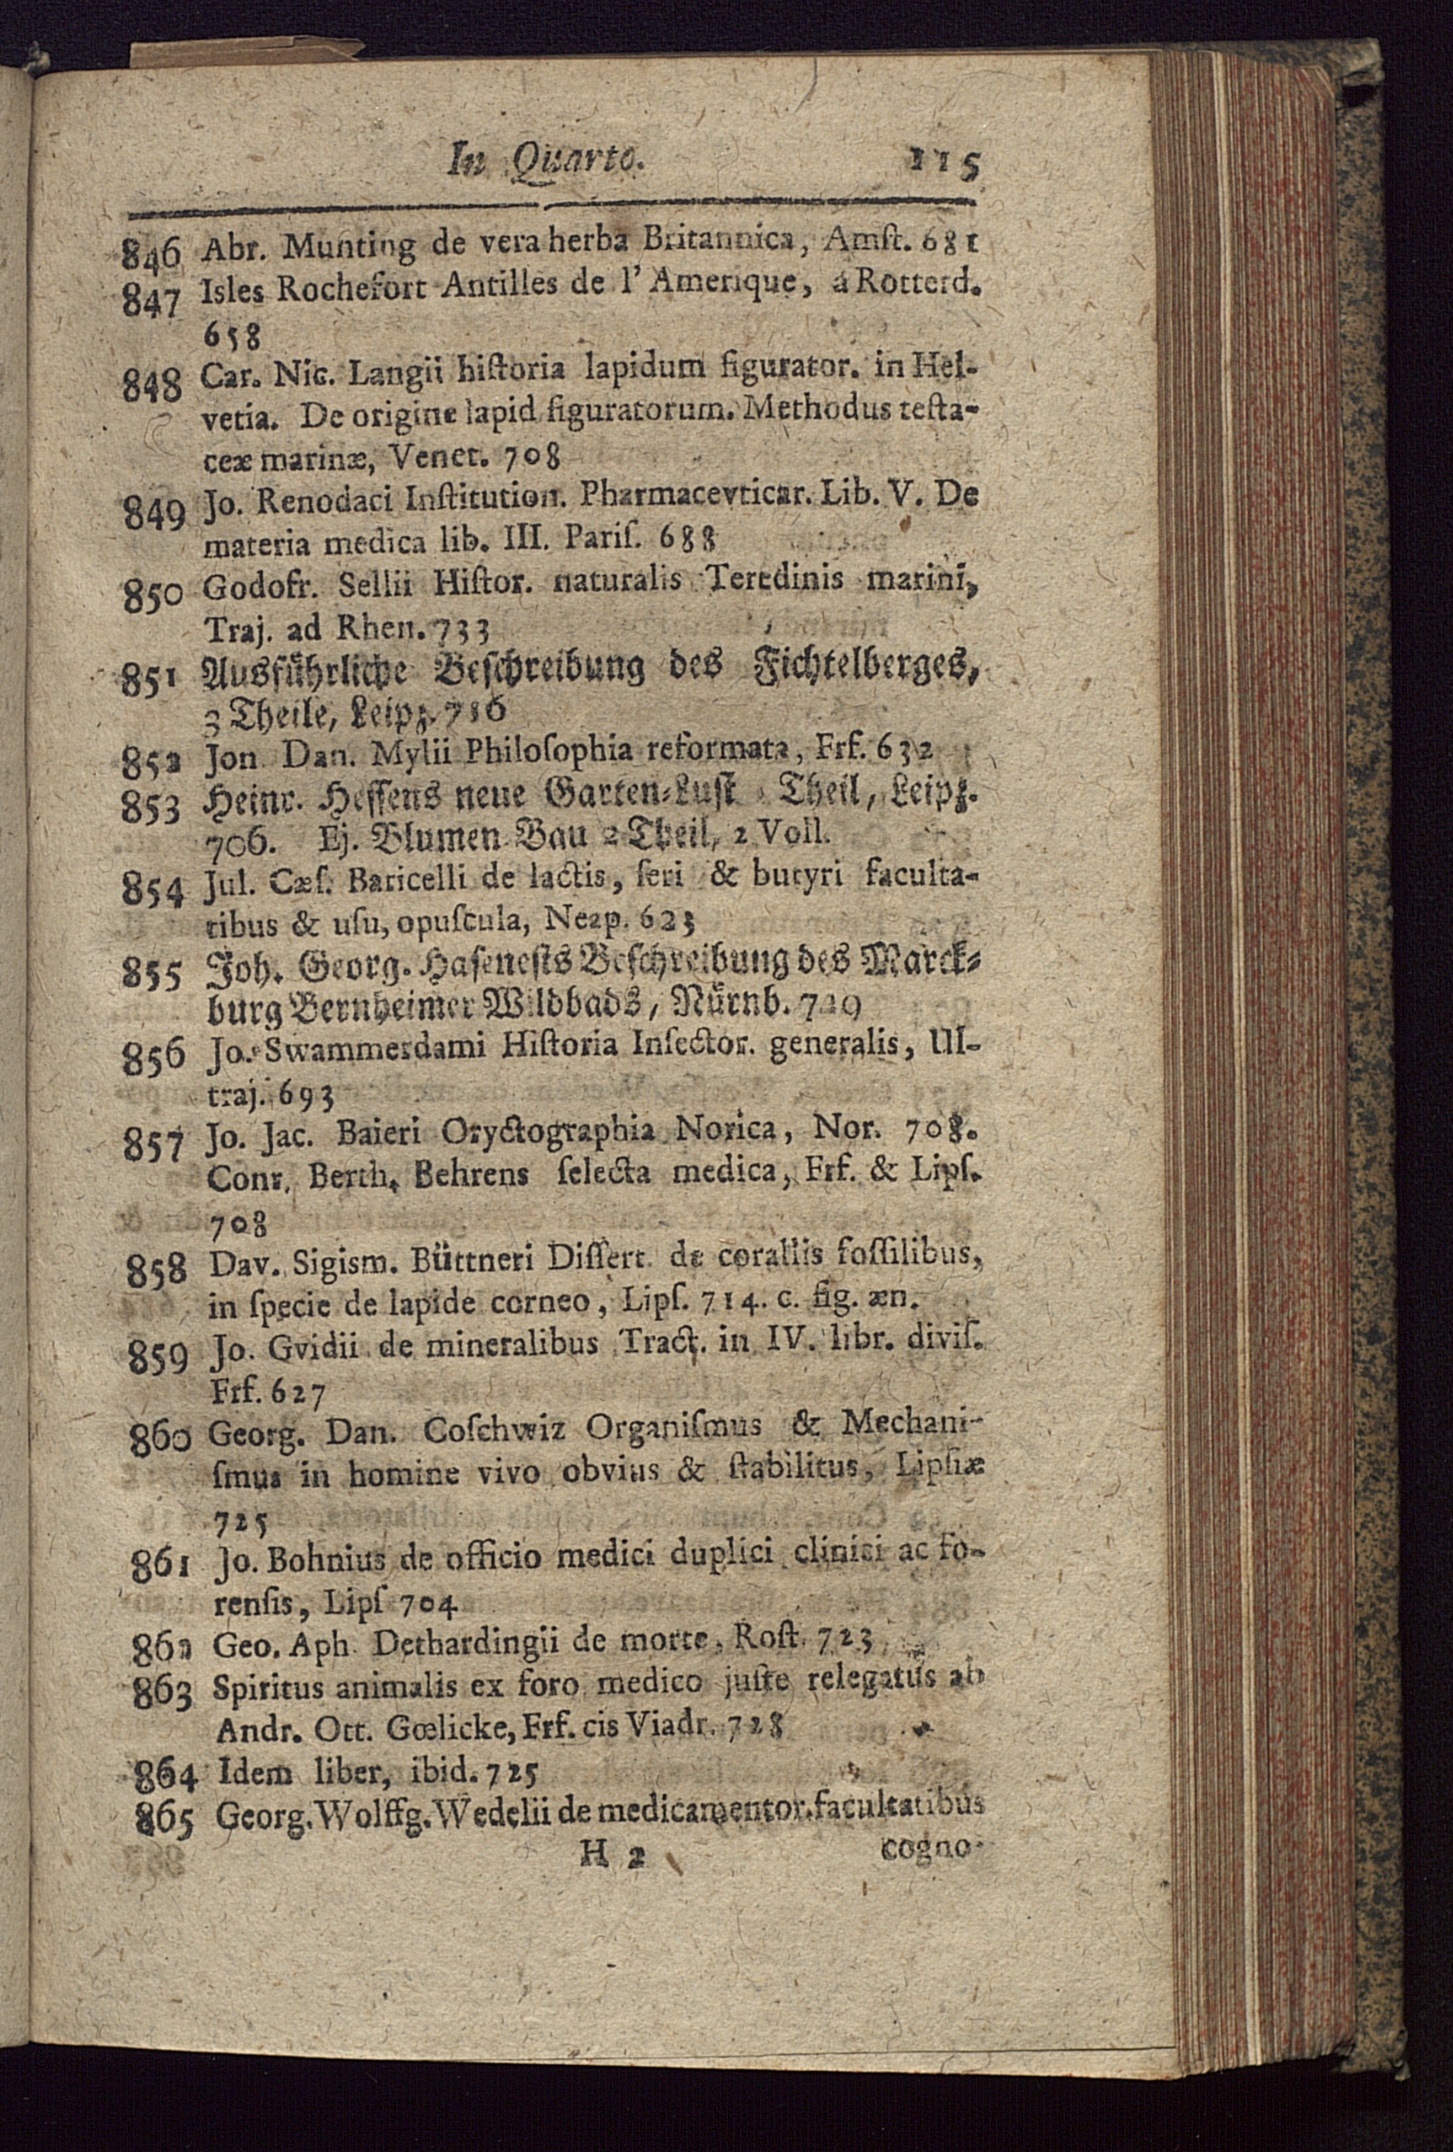 In Quarto. 115
846 Abr. Munting de vera herba Britannica, Amſt. 681
847 Isles Rochefort Antilles de l' Amerique, à Rotterd.
658
848 Car. Nic. Langii hiſtoria lapidum figurator. in Hel-
vetia. De origine lapid figuratorum. Methodus teſta-
ceæ marinæ, Venet. 708
849 Jo. Renodaci Inſtitution. Pharmacevticar. Lib. V. De
materia medica lib. III. Pariſ. 688
850 Godofr. Sellii Hiſtor. naturalis Teredinis marini,
Traj. ad Rhen. 733
851 Ausführliche Beſchreibung des Fichtelberges,
3 Theile, Leipz. 716
852 Jon Dan. Mylii Philoſophia reformata, Frf. 632
853 Heinr. Heſſens neue Garten-Luſt Theil, Leipz.
706. Ej. Blumen-Bau 2 Theil, 2 Voll.
854 Jul. Cæſ. Baricelli de lactis, ſeri & butyri faculta-
tibus & uſu, opuſcula, Neap. 623
855 Joh. Georg. Haſeneſts Beſchreibung des Marck-
burg Bernheimer Wildbads, Nürnb. 729
856 Jo. Swammerdami Hiſtoria Inſector. generalis, Ul-
traj. 693
857 Jo. Jac. Baieri Oryctographia Norica, Nor. 708.
Conr. Berth. Behrens ſelecta medica, Frf. & Lipſ.
708
858 Dav. Sigism. Büttneri Diſſert. de corallis foſſilibus,
in ſpecie de lapide corneo, Lipſ. 714. c. fig. æn.
859 Jo. Gvidii de mineralibus Tract. in IV. libr. diviſ.
Frf. 627
860 Georg. Dan. Coſchwiz Organiſmus & Mechani-
ſmus in homine vivo obvius & ſtabilitus, Lipſiæ
725
861 Jo. Bohnius de officio medici duplici clinici ac fo-
renſis, Lipſ 704
862 Geo. Aph Dethardingii de morte, Roſt. 723
863 Spiritus animalis ex foro medico juſte relegatus ab
Andr. Ott. Gœlicke, Frf. cis Viadr. 728
864 Idem liber, ibid. 725
865 Georg. Wolffg. Wedelii de medicamentor. facultatibus
H 2 cogno-